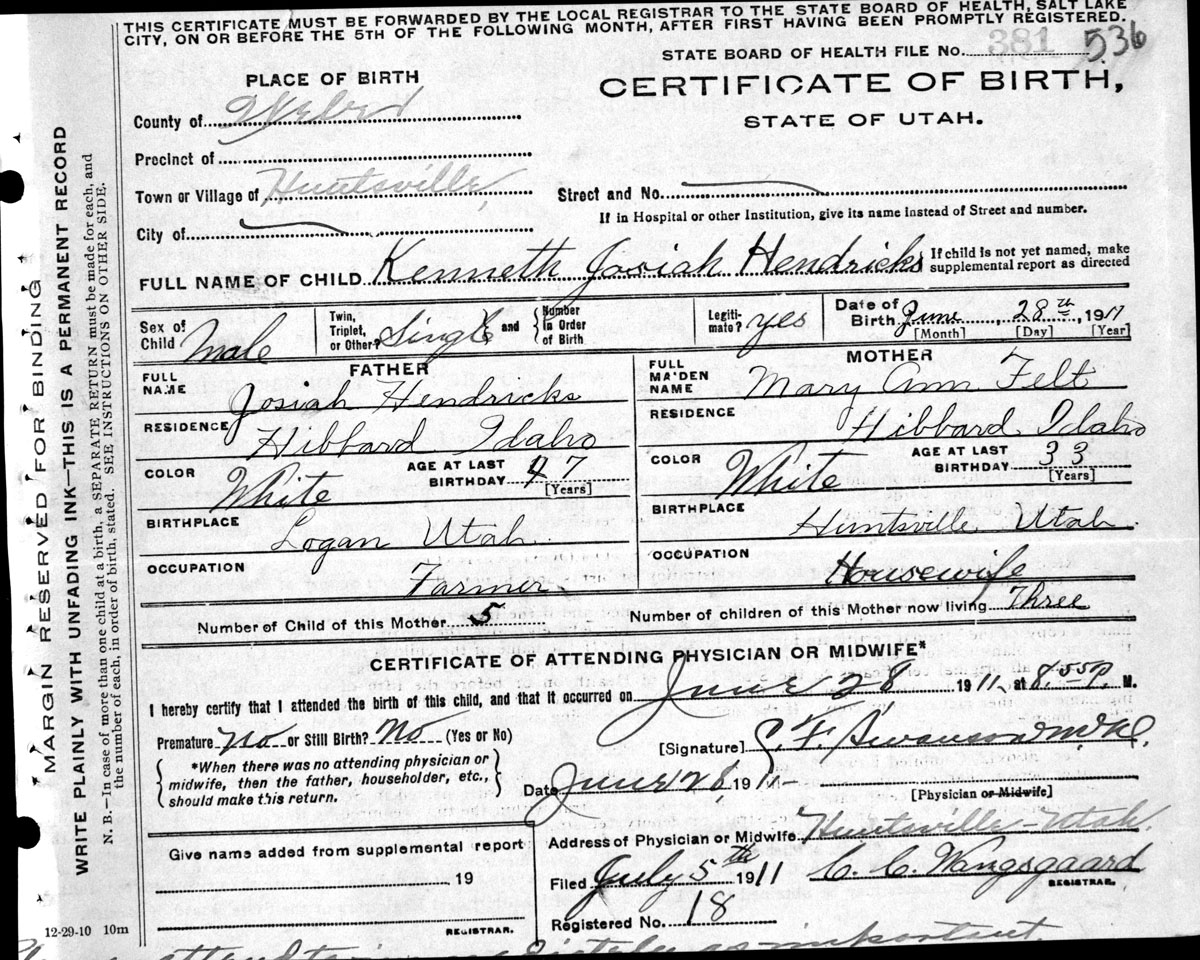 THIS CERTIFICATE MUST BE FORWARDED BY THE LOCAL REGISTRAR TO THE STATE BOARD OF HEALTH, SALT LAKE
CITY, ON OR BEFORE THE 5TH OF THE FOLLOWING MONTH, AFTER FIRST HAVING BEEN PROMPTLY REGISTERED.
STATE BOARD OF HEALTH FILE No. 381 536
PLACE OF BIRTH
CERTIFICATE OF BIRTH,
STATE OF UTAH.
County of Weber
Precinct of
Town or Village of Huntsville
Street and No.
If in Hospital or other Institution, give its name instead of Street and number.
City of
FULL NAME OF CHILD Kenneth Josiah Hendricks
If child is not yet named, make
supplemental report as directed
Sex of Child Male
Twin, Triplet, or Other? Single and Number in Order of Birth
Legiti-mate? yes
Date of Birth June 28th 1911
[Month] [Day] [Year]
FATHER
FULL NAME Josiah Hendricks
RESIDENCE Hibbard Idaho
COLOR White
AGE AT LAST BIRTHDAY 47 [Years]
BIRTHPLACE Logan Utah
OCCUPATION Farmer
MOTHER
FULL MAIDEN NAME Mary Ann Felt
RESIDENCE Hibbard Idaho
COLOR White
AGE AT LAST BIRTHDAY 33 [Years]
BIRTHPLACE Huntsville Utah.
OCCUPATION Housewife
Number of Child of this Mother 5
Number of children of this Mother now living Three
CERTIFICATE OF ATTENDING PHYSICIAN OR MIDWIFE*
I hereby certify that I attended the birth of this child, and that it occurred on June 28 1911, at 8.55 P. M.
Premature No or Still Birth? No (Yes or No)
[Signature] Swanson
*When there was no attending physician or
midwife, then the father, householder, etc.,
should make this return.
Date June 28 1911
[Physician or Midwife]
Address of Physician or Midwife Huntsville-Utah.
Give name added from supplemental report
19
REGISTRAR.
Filed July 5th 1911 C. C. Wangsgaard
REGISTRAR.
Registered No. 18
12-29-10 10m
important.
MARGIN RESERVED FOR BINDING
WRITE PLAINLY WITH UNFADING INK—THIS IS A PERMANENT RECORD
N. B.—In case of more than one child at a birth, a SEPARATE RETURN must be made for each, and
the number of each, in order of birth, stated. SEE INSTRUCTIONS ON OTHER SIDE.